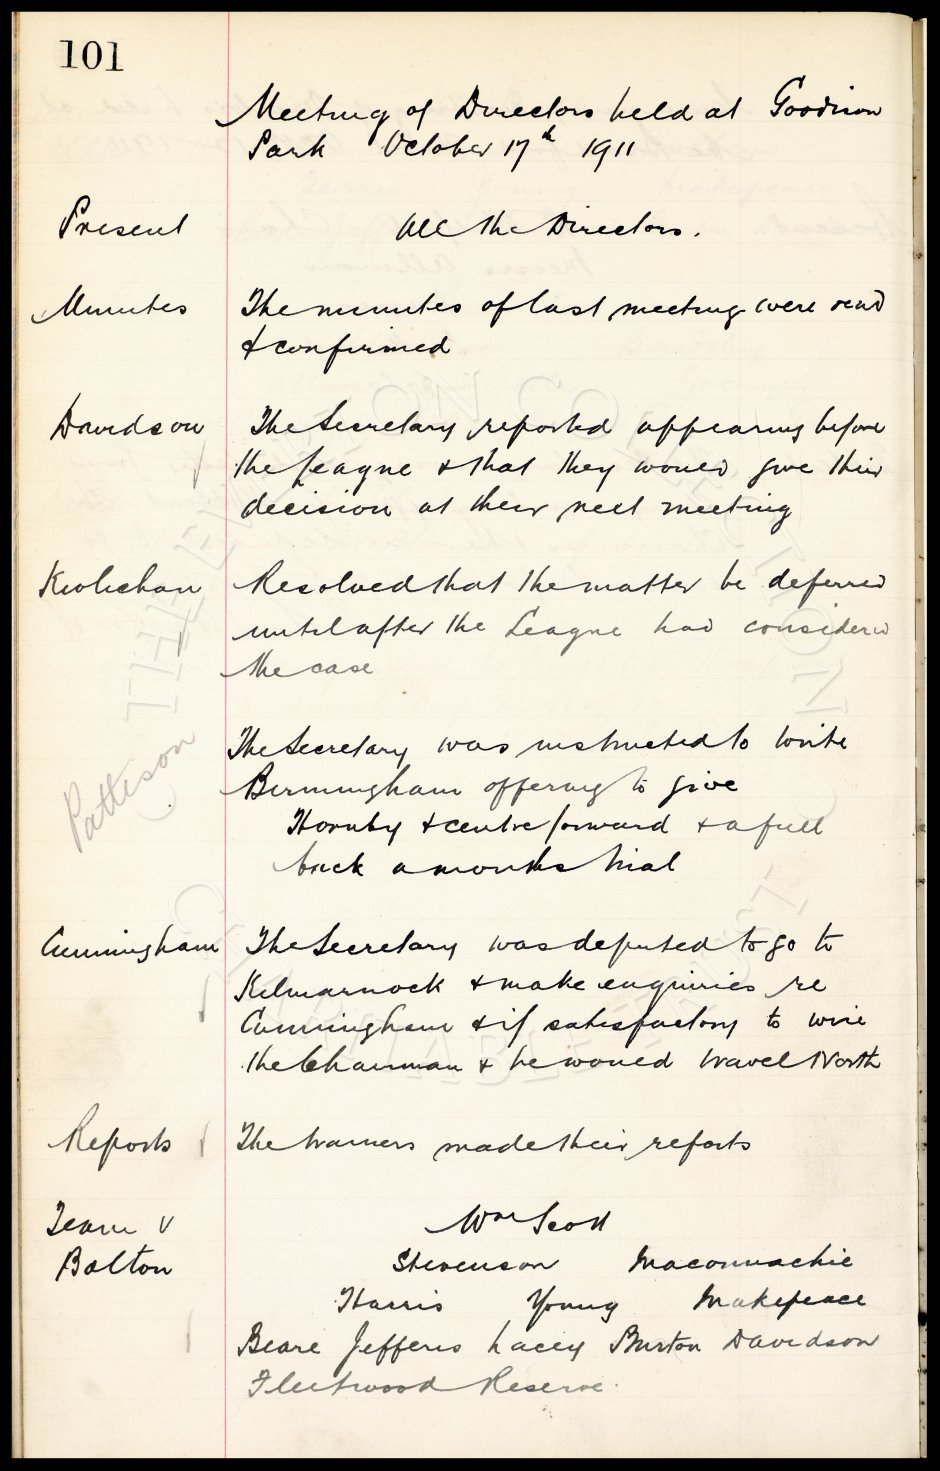 101
Meeting of Directors held at Goodison
Park October 17th 1911
Present All the Directors.
Minutes The minutes of last meeting were read
& confirmed
Davidson The Secretary reported appearing before
the League & that they would give their
decision at their next meeting
Resolved that the matter be deferred
until after the League had considered
the case
Pattison
The Secretary was instructed to write
Birmingham offering to give
Hornby & centre forward & a full
back a months trial
Cunningham The Secretary was deputed to go to
Kilmarnock & make enquiries re
Cunningham & if satisfactory to wire
the Chairman & he would travel North
Reports The trainers made their reports
Team v Wm Scott
Bolton Stevenson Maconnachie
Harris Young Makepeace
Beare Jefferis Lacey Burton Davidson
Fleetwood Reserve.